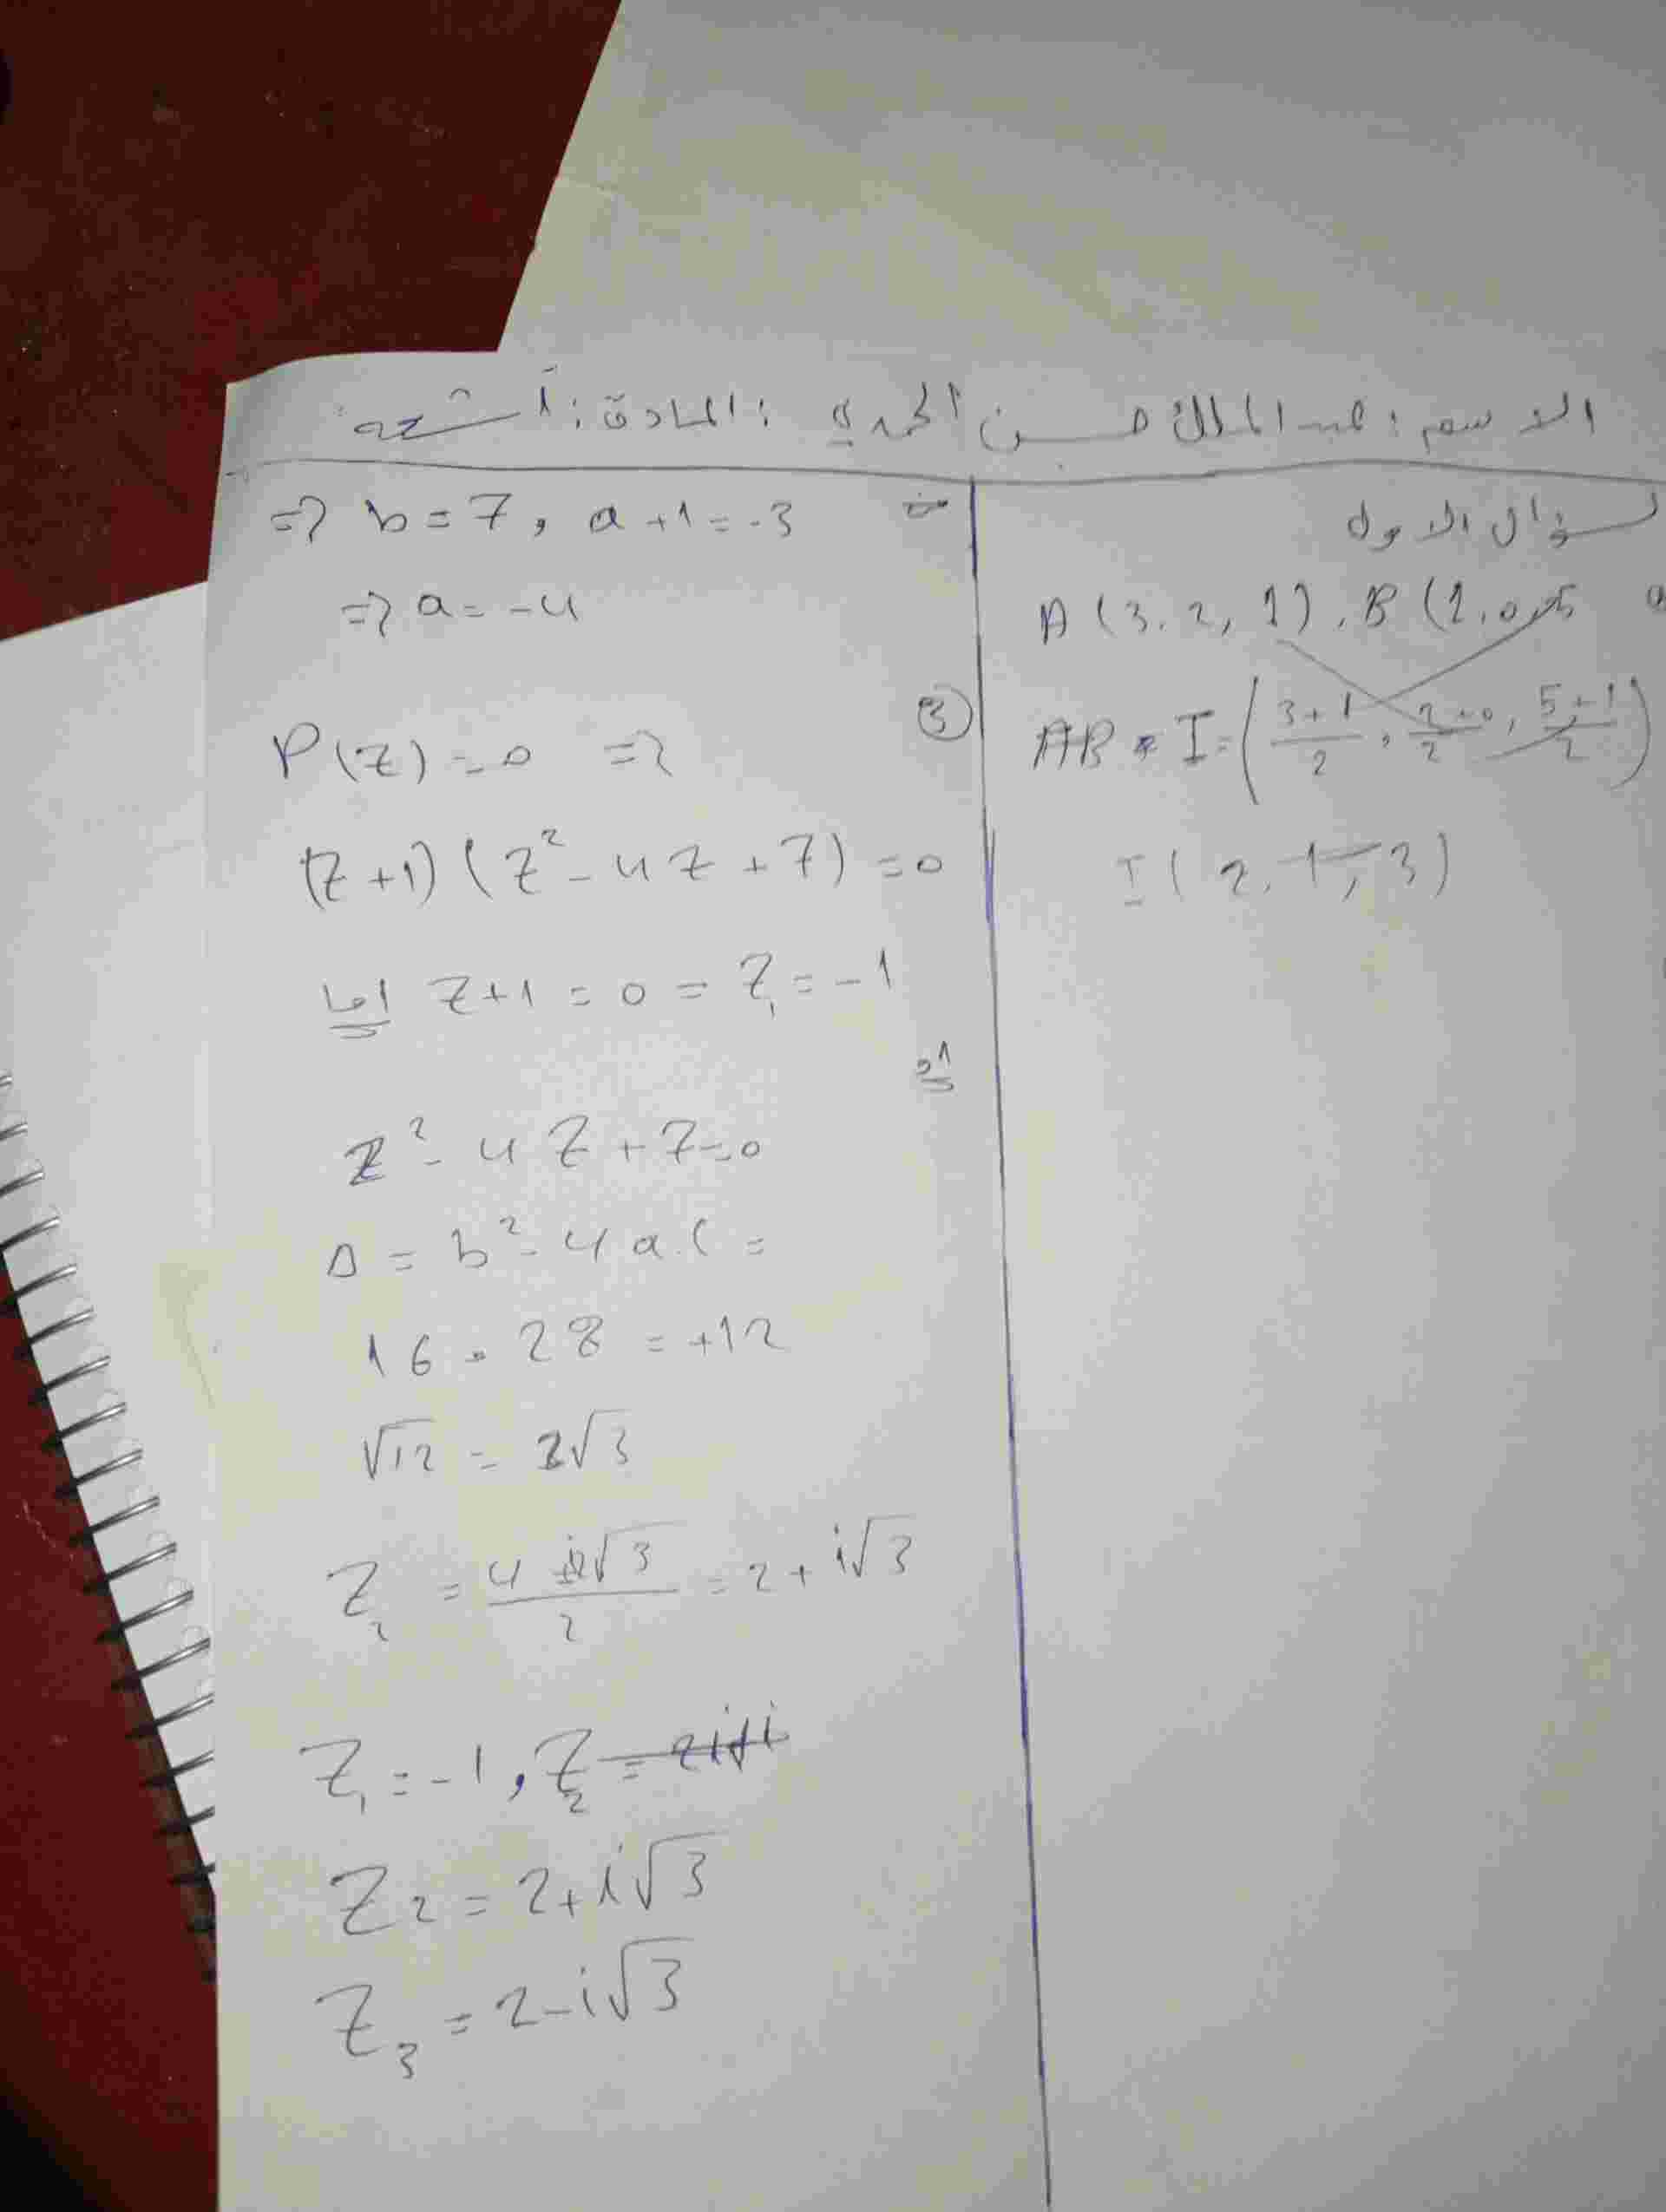 الاسم: عبد الملك حسن الحمدي: المادة: أشعة
لسؤال الاول
A (3, 2, 1), B (1, 0, 5
AB = I = (3+1/2, 2+0/2, 5+1/2)
I (2, 1, 3)
=> b = 7, a + 1 = -3
=> a = -4
③
P(z) = 0 =>
(z+1) (z² - 4z + 7) = 0
اما z+1 = 0 = z₁ = -1
او
z² - 4z + 7 = 0
Δ = b² - 4a.c =
16 - 28 = +12
√12 = 2√3
z₂ = 4 + i2√3/2 = 2 + i√3
z₁ = -1, z₂ =
z2 = 2 + i√3
z₃ = 2 - i√3